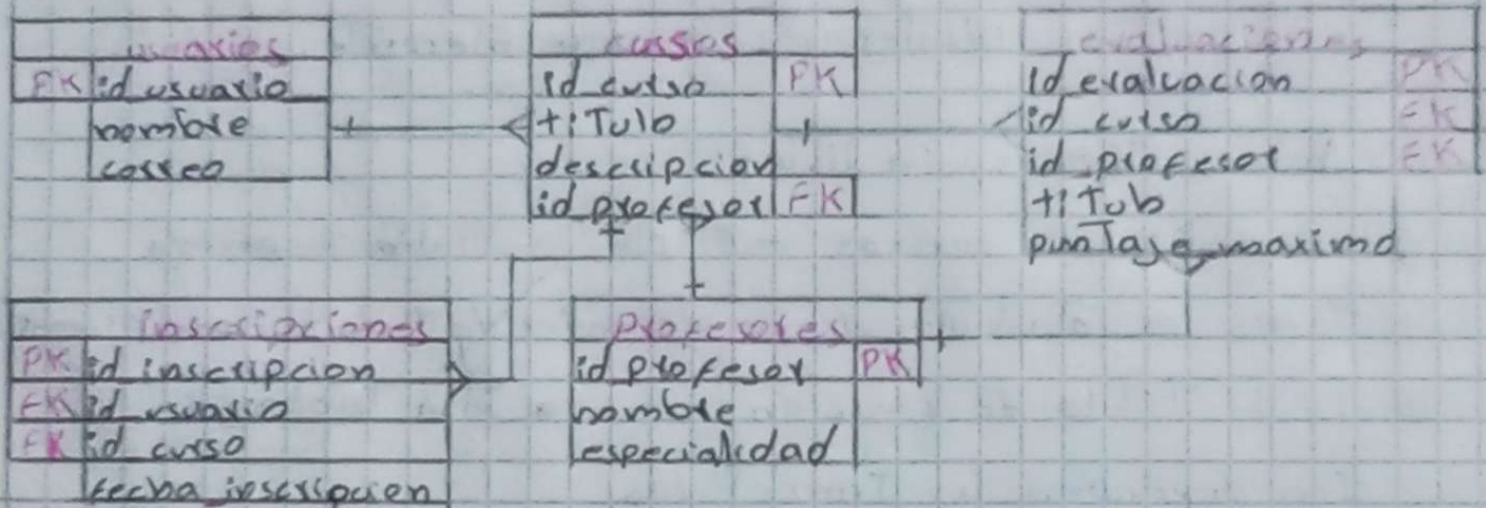 usuarios
PK id_usuario
nombre
correo
cursos
id_curso PK
titulo
descripcion
id_profesor FK
evaluaciones
id_evaluacion PK
id_curso FK
id_profesor FK
titulo
puntaje_maximo
inscripciones
PK id_inscripcion
FK id_usuario
FK id_curso
fecha_inscripcion
profesores
id_profesor PK
nombre
especialidad